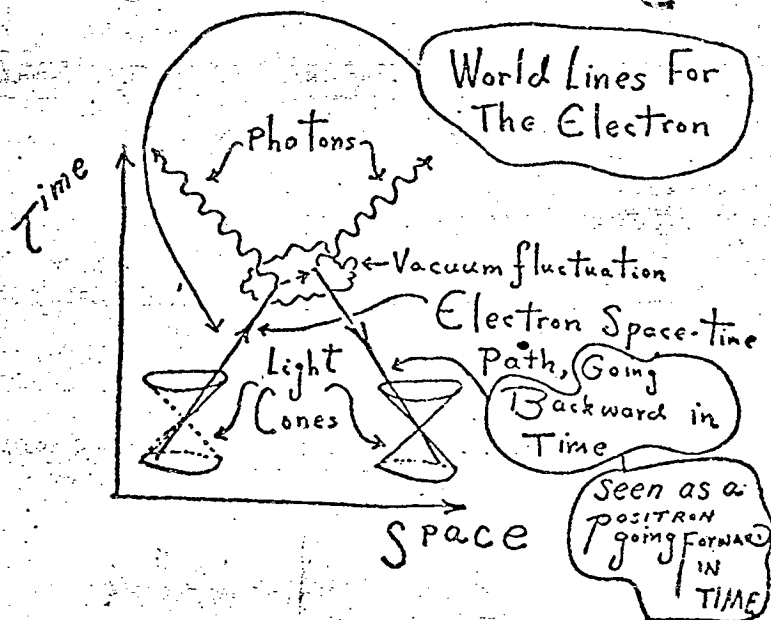 World Lines For
The Electron
photons
Time
Vacuum fluctuation
Electron Space-time
Path, Going
Backward in
Time
Light
Cones
Seen as a
POSITRON
going FORWARD
IN
TIME
Space